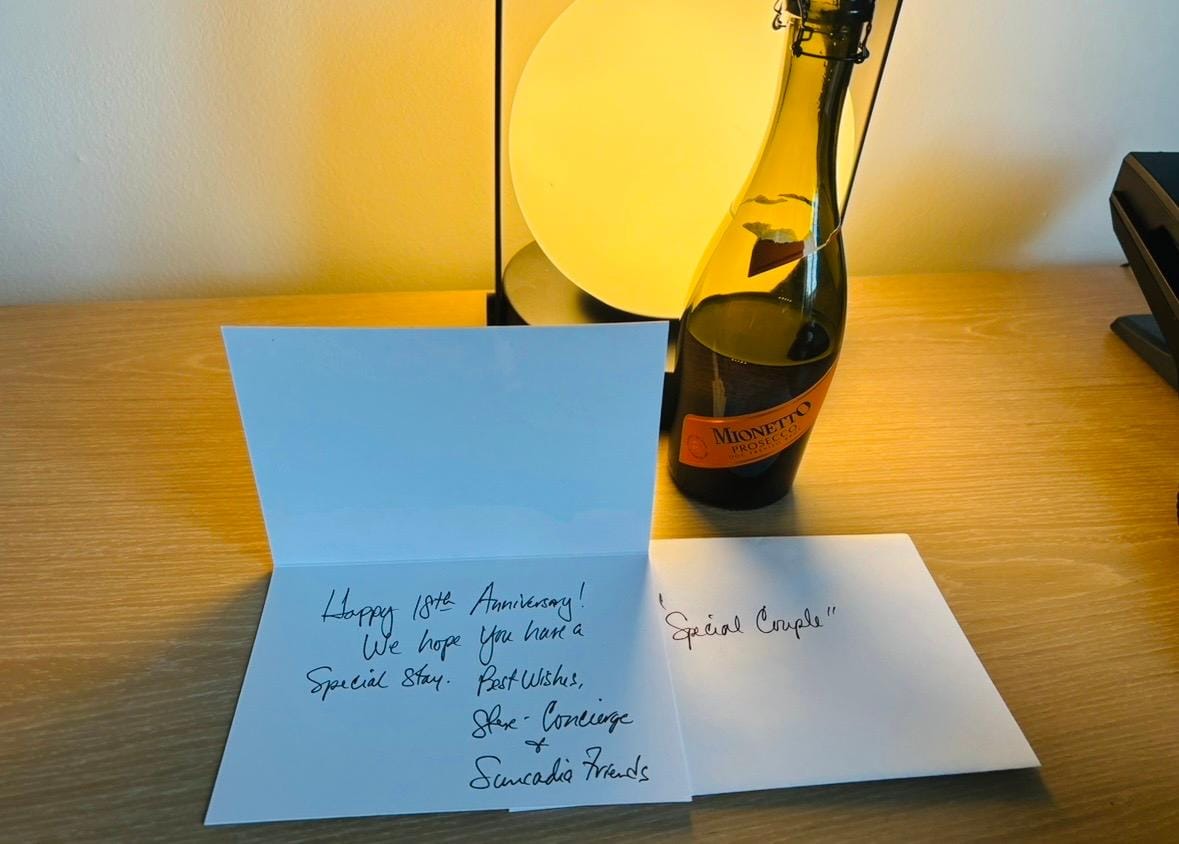 MIONETTO
PROSECCO
Happy 18th Anniversary!
We hope You have a
Special Stay. Best Wishes,
Concierge
+
Suncadia Friends
"Special Couple"